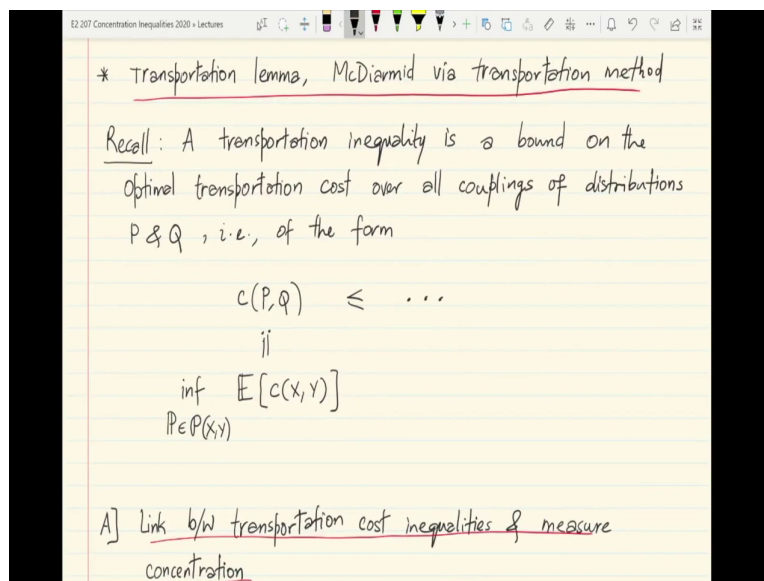 E2 207 Concentration Inequalities 2020 » Lectures
* Transportation lemma, McDiarmid via transportation method
Recall : A transportation inequality is a bound on the
optimal transportation cost over all couplings of distributions
P & Q , i.e., of the form
c(P,Q) ≤ ...
||
inf 𝔼[c(X,Y)]
ℙ∈𝒫(X,Y)
A] Link b/w transportation cost inequalities & measure
concentration